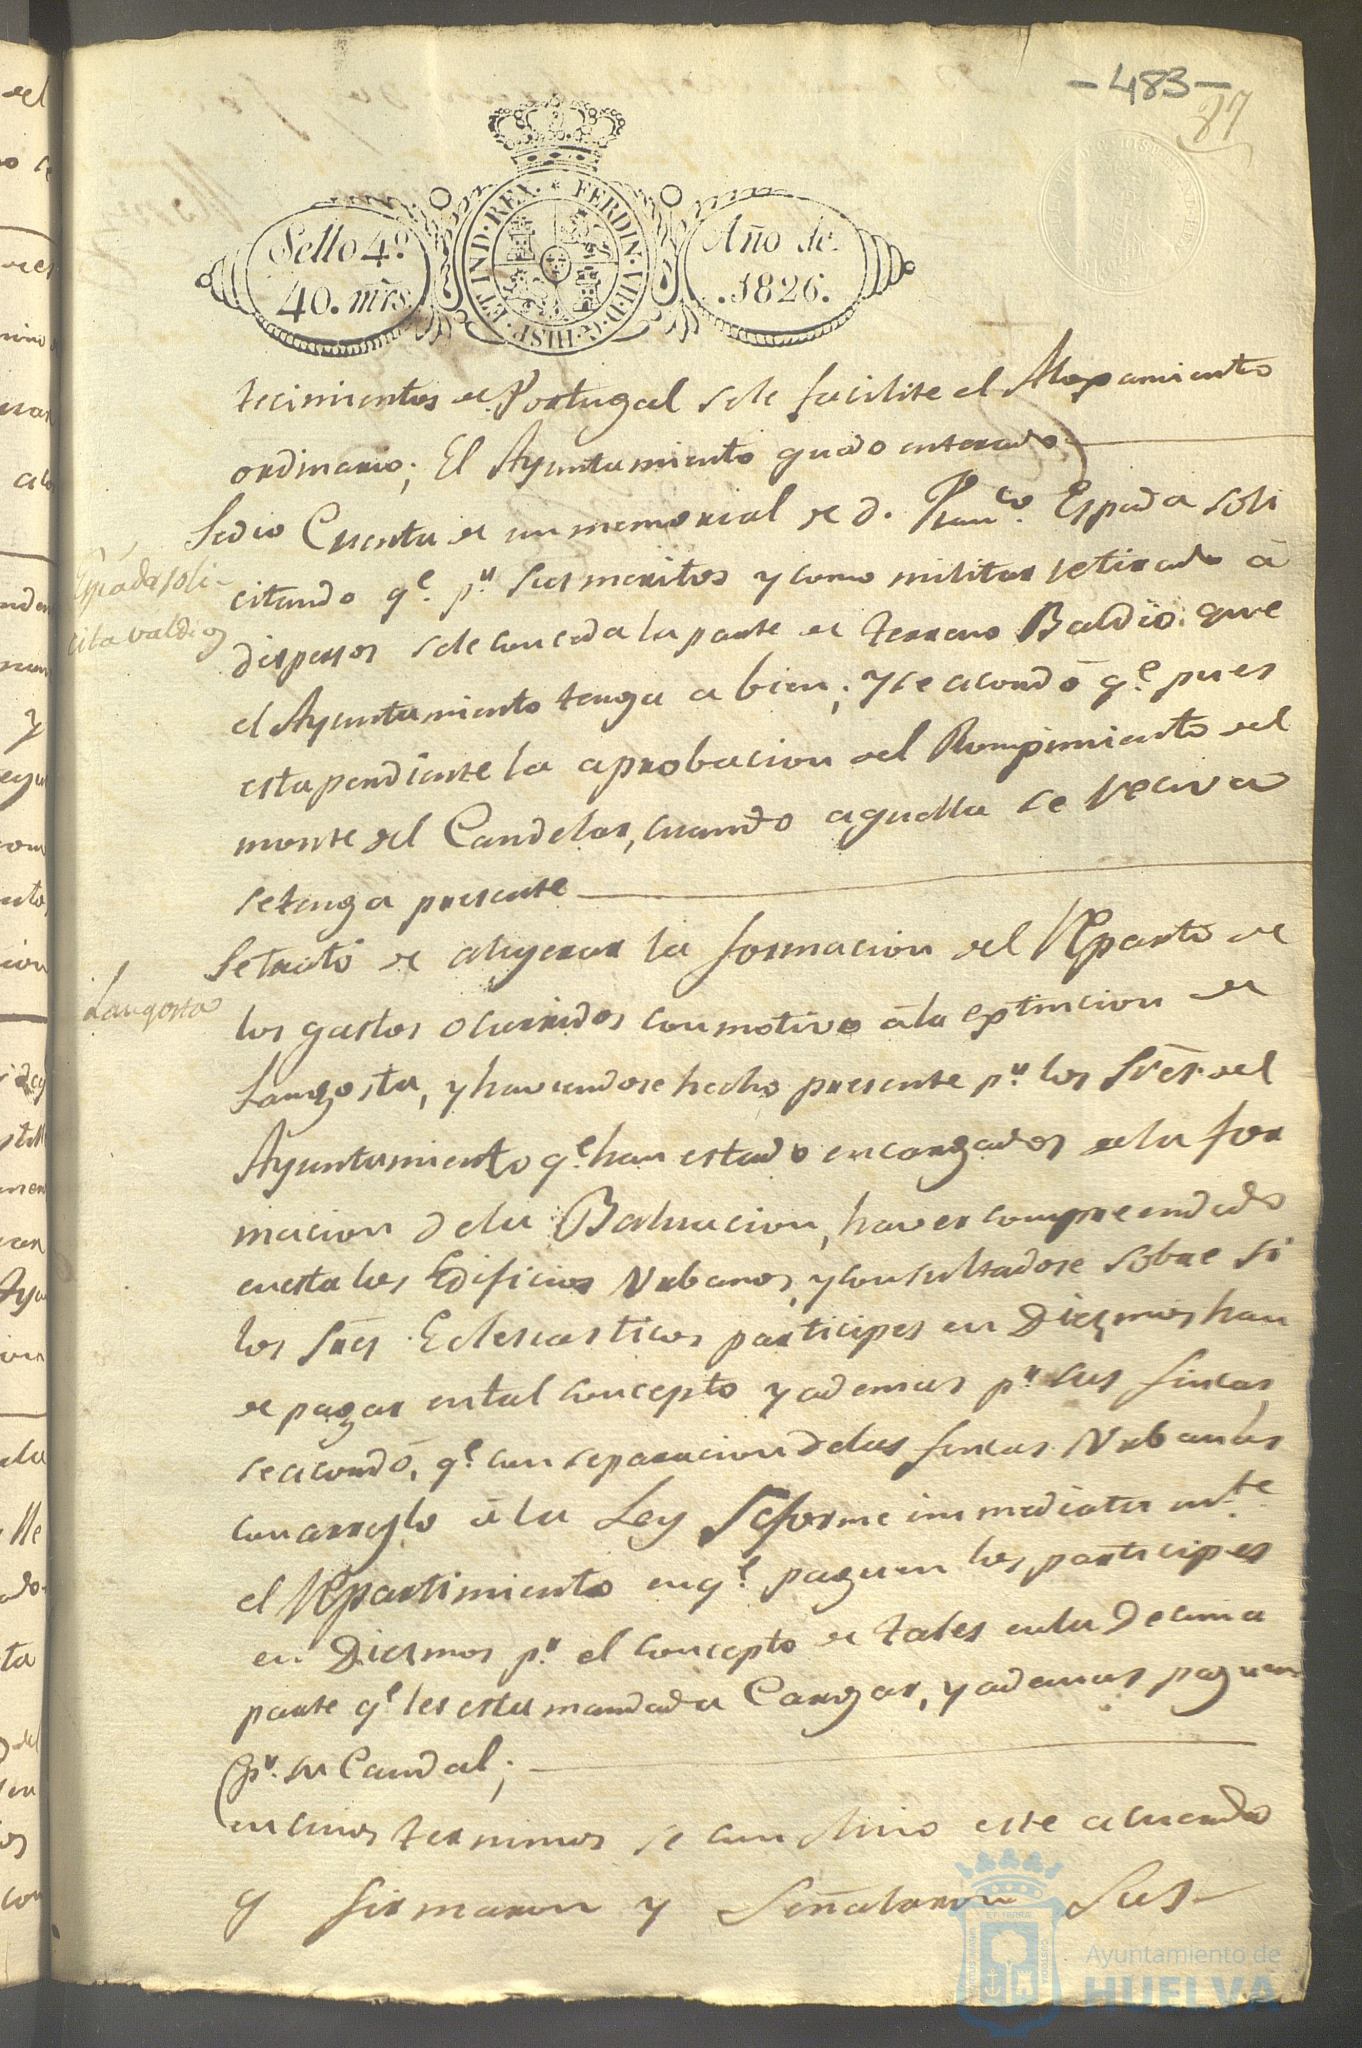 -483-
87
Sello 4.º
40. mrs.
HISP. ET IND. REX. * FERDIN. VII. D. G.
Año de
.1826.
tecimientos de Portugal sele facilite el Aloxamiento
ordinario; El Ayuntamiento quedo enterado.
Sedio Cuenta de un memorial de D. Franco. Espada soli
Espada soli-
cita valdios
citando qe. pr. sus meritos y como militar retirado á
dispersos sele conceda la parte de terreno Baldio que
el Ayuntamiento tenga a bien; y se acordó qe. pues
esta pendiente la aprobacion del Rompimiento del
monte del Candelar, cuando aquella se reciva
setenga presente
Langosta
Setrató de aligerar la formacion del Reparto de
los gastos ocurridos con motivo á la extincion de
Langosta, y haviendose hecho presente pr. los Sres. del
Ayuntamiento qe. han estado encargados de la for
macion dela Baluacion, haver compreendido
en esta los Edificios Urbanos, y consultadose sobre si
los Sres. Eclesiasticos participes en Diezmos han
de pagar en tal concepto y ademas pr. sus fincas
se acordó, qe. con separacion delas fincas Urbanas
con arreglo á la Ley Seforme inmediatamte.
el Repartimiento en qe. paguen los participes
en Diezmos pr. el concepto de tales en la Decima
parte qe. les esta mandada Cargar, y ademas paguen
pr. su Caudal;
en cuios terminos se concluio este acuerdo
y firmaron y Señalaron Sus
Ayuntamiento de
HUELVA